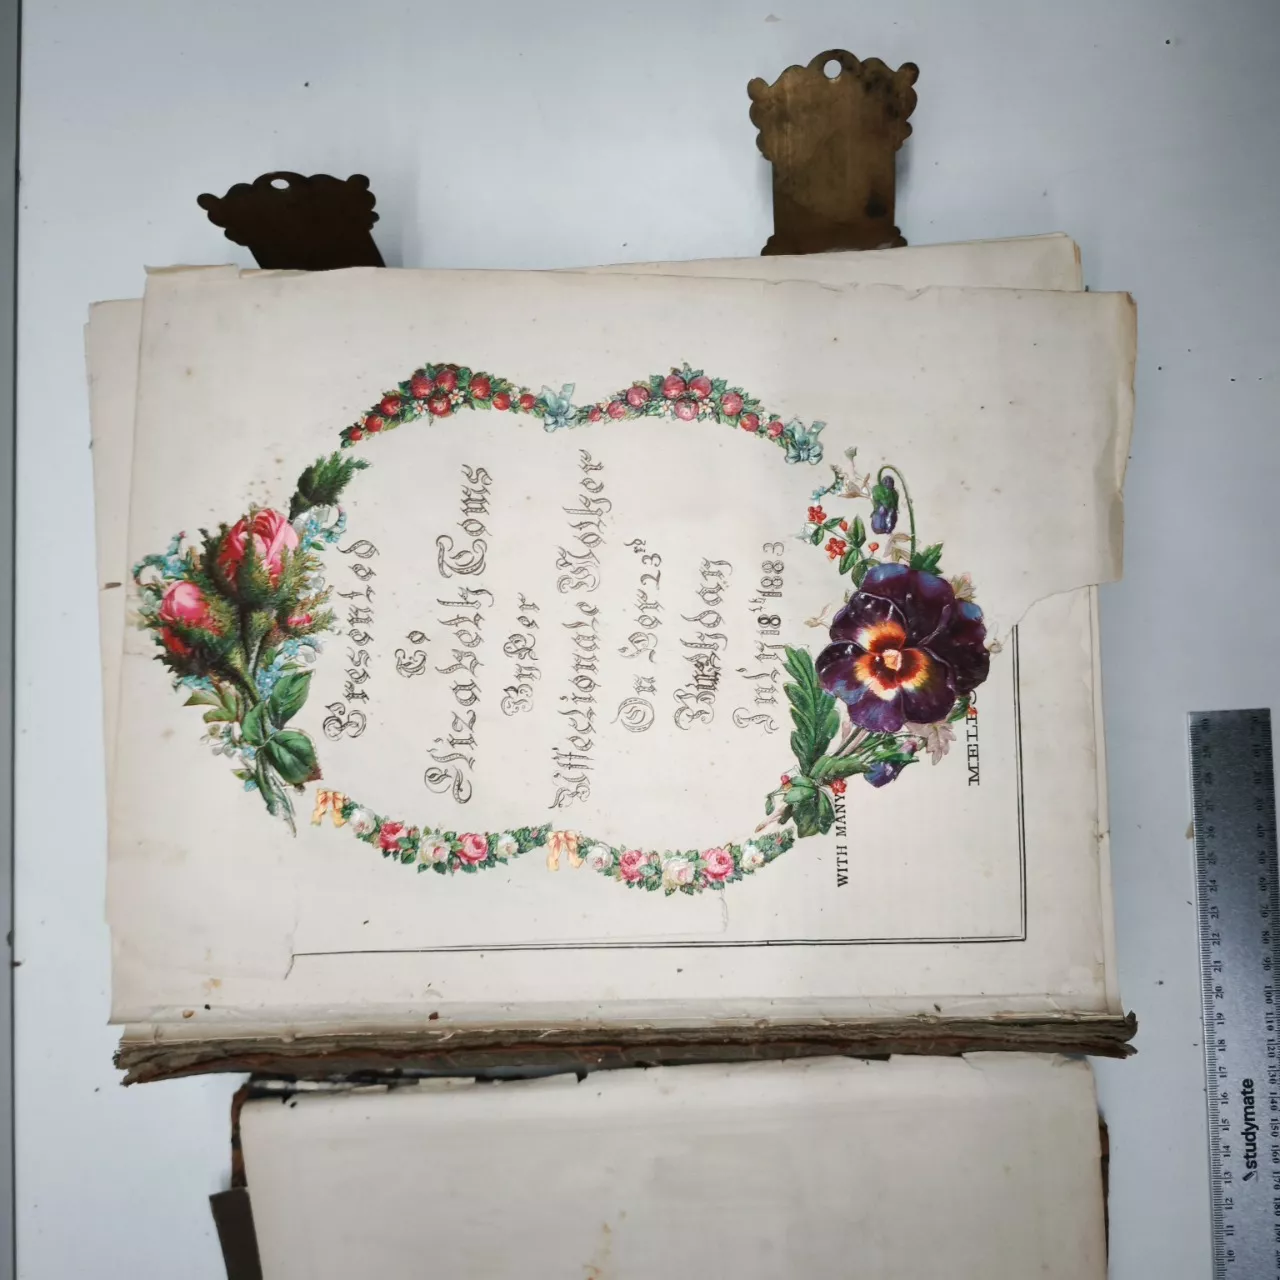 Presented
To
Elizabeth Toms
By Her
Affectionate Mother
On Her 23rd
Birthday
July 18th 1883
WITH MANY
MELBO
studymate